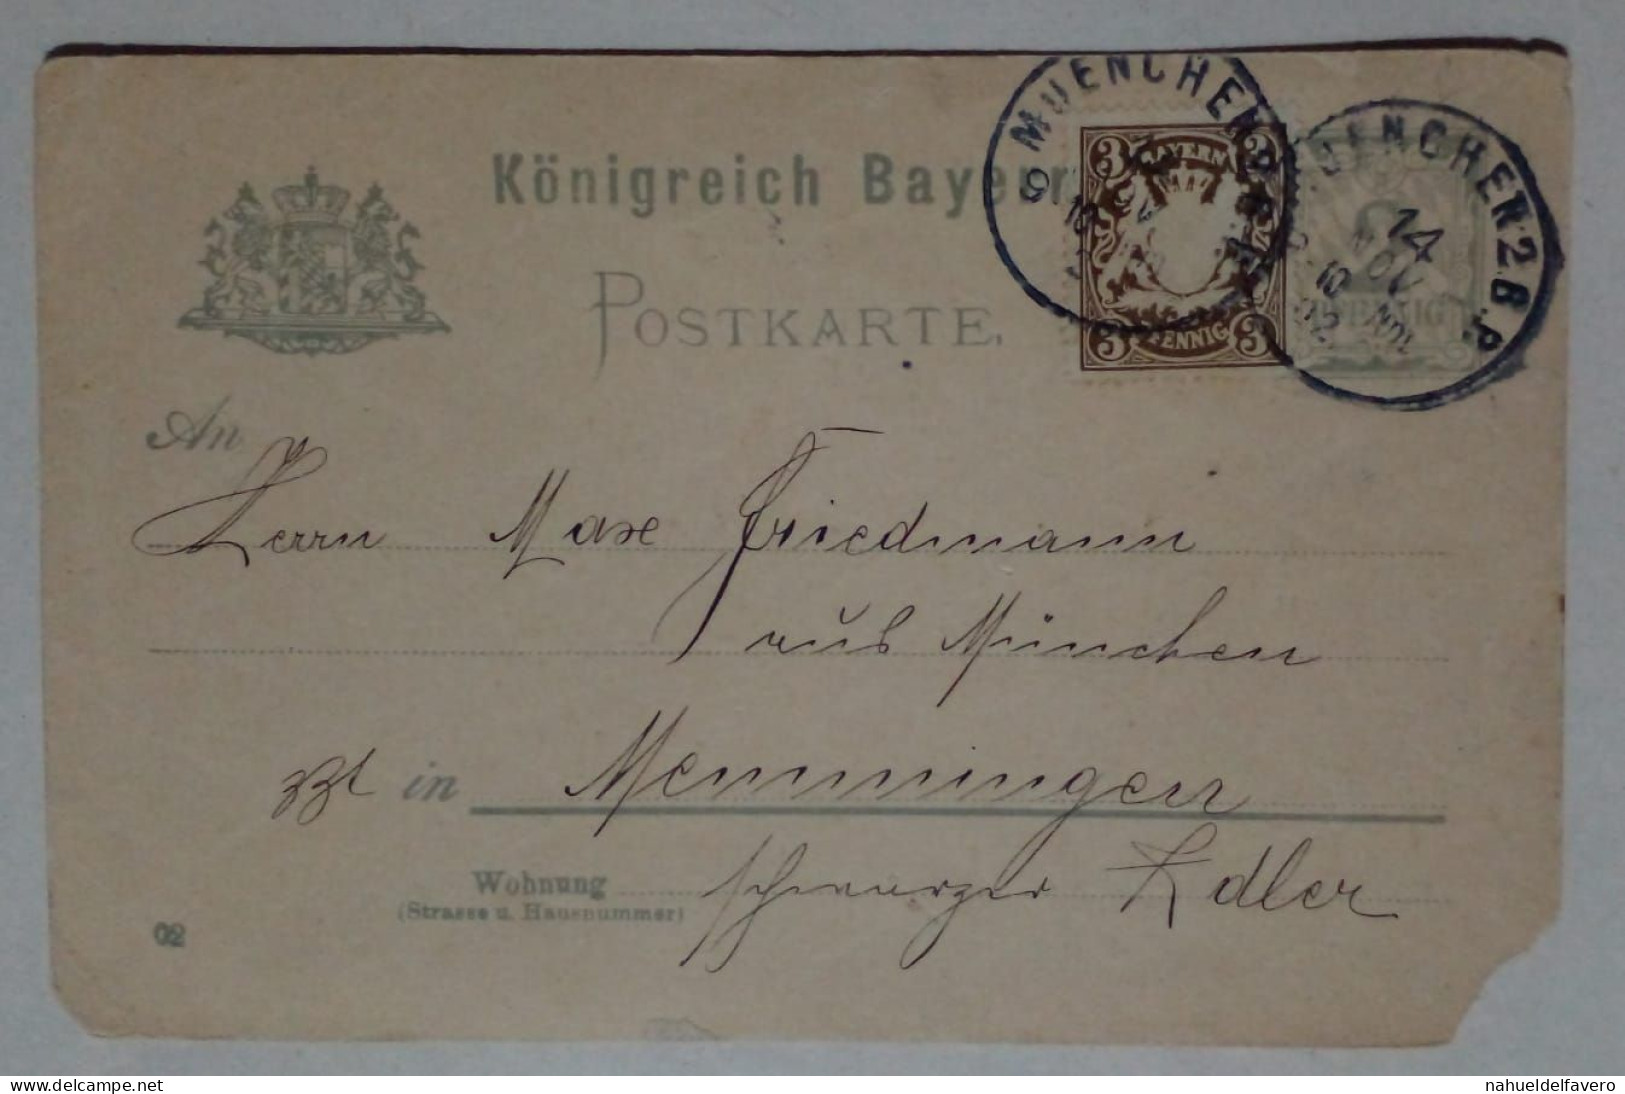 Königreich Bayern
POSTKARTE.
MUENCHEN
3 BAYERN 3
3 PFENNIG 3
MUENCHEN 2 B.P.
14
NOV
10
02
2
PFENNIG
An
Herrn Max Friedmann
aus München
zzt in Memmingen
Wohnung schwarzer Adler
(Strasse u. Hausnummer)
02
nahueldelfavero